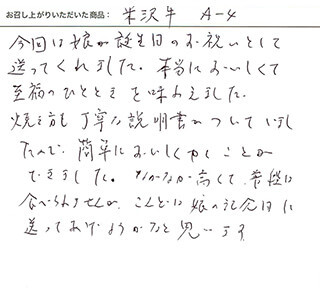 お召し上がりいただいた商品： 米沢牛 A-4
今回は娘が誕生日のお祝いとして
送ってくれました。本当においしくて
至福のひとときを味わえました。
焼き方も丁寧な説明書がついていまし
たので、簡単においしくやくことが
できました。なかなか高くて、普段は
食べられませんが、こんどは娘の記念日に
送ってあげようかなと思います